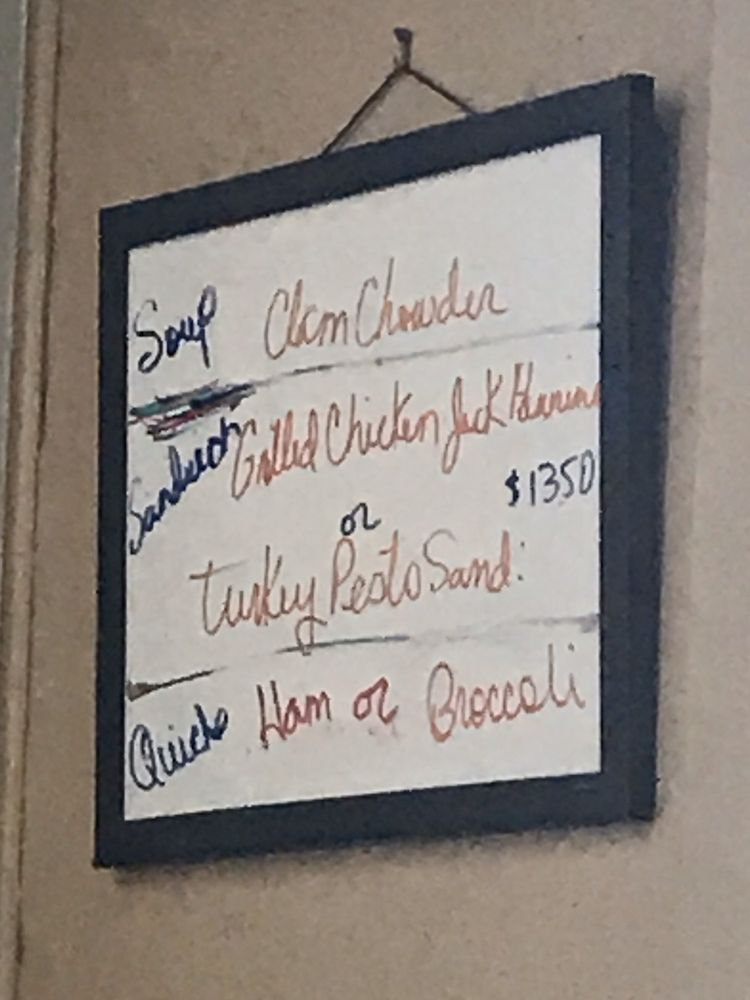 Soup Clam Chowder
Sandwich Grilled Chicken Jack
$1350
or
Turkey Pesto Sand:
Quiche Ham or Broccoli